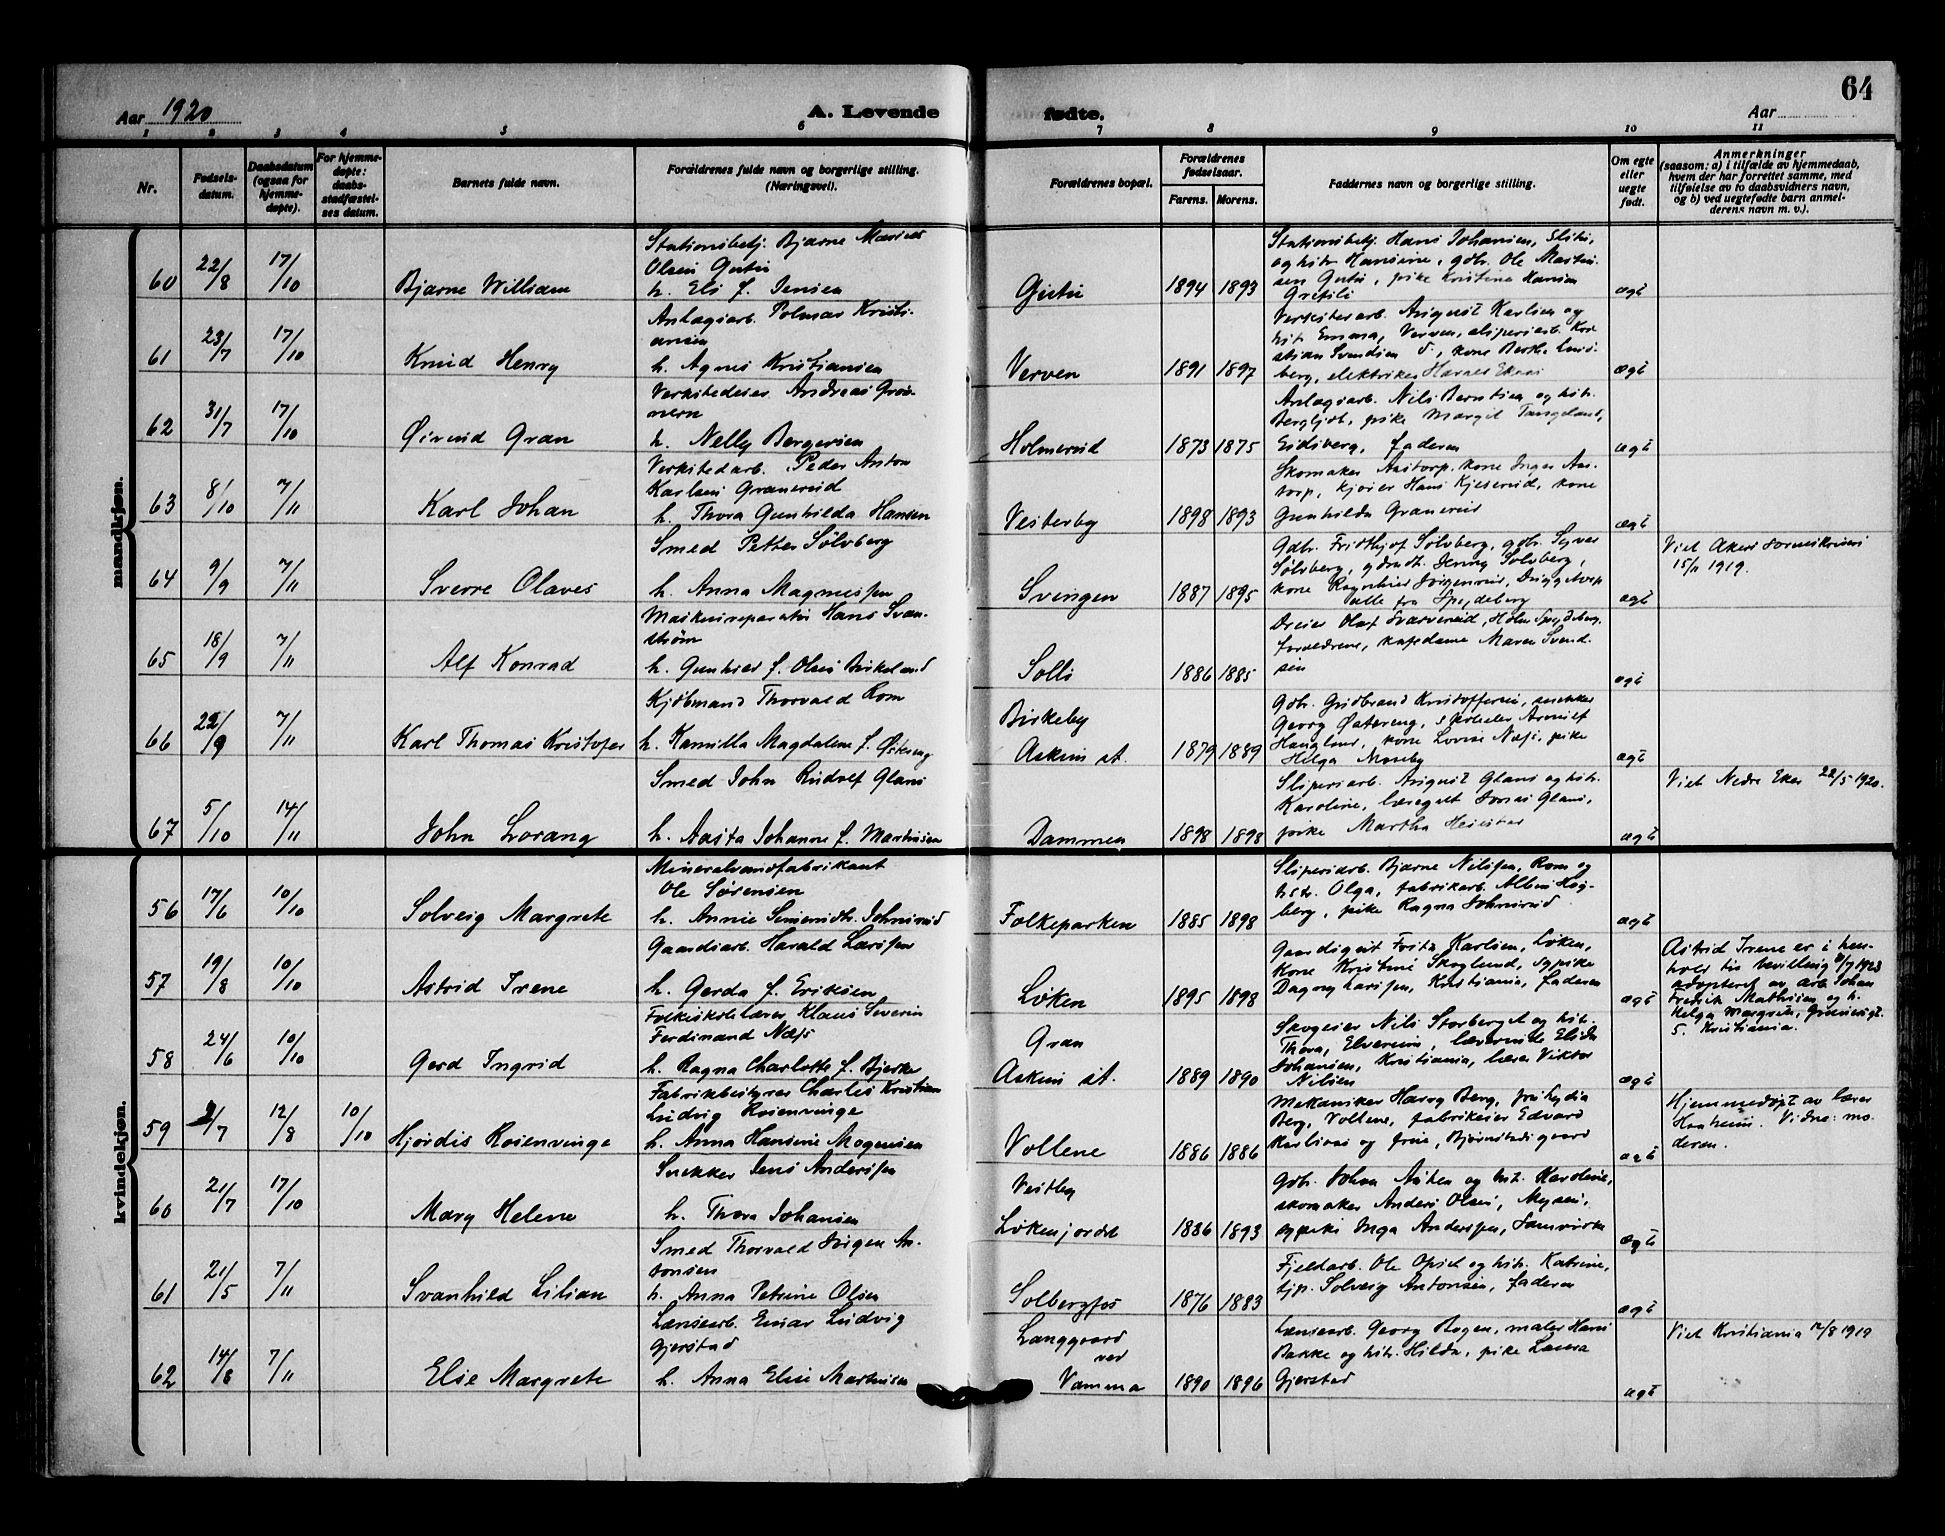 64
Aar 1920
A. Levende
fødte.
Aar
1 2 3 4 5 6 7 8 9 10 11
Nr.
Fødsels-
datum.
Daabsdatum
(ogsaa for
hjemme-
døpte).
For hjemme-
døpte:
daabs-
stadfæstel-
ses datum.
Barnets fulde navn.
Forældrenes fulde navn og borgerlige stilling.
(Næringsvei).
Forældrenes bopæl.
Forældrenes
fødselsaar.
Farens. Morens.
Faddernes navn og borgerlige stilling.
Om egte
eller
uegte
født.
Anmerkninger
(saasom: a) i tilfælde av hjemmedaab,
hvem der har forrettet samme, med
tilføielse av to daabsvidners navn,
og b) ved uegtefødte barn anmel-
derens navn m. v.).
mandkjøn.
60 22/8 17/10 Bjarne William
Stationsbetj. Bjarne Marius
Olsen Gutu
h. Eli f. Jensen
Gutu 1894 1893
Stationsbetj. Hans Johansen, Slitu,
og hstr Hansine, gdbr. Ole Martin-
sen Gutu, pike Kristine Hansen
Grefsli
ægte
61 23/7 17/10 Knud Henry
Anlægsarb. Polmar Kristi-
ansen
h. Agnes Kristiansen
Verven 1891 1897
Verkstedarb. August Karlsen og
hst Emma, Verven, sliperiarb. Kri
stian Svendsen d., kone Berthe Lund-
berg, elektriker Harnes Ekaas
ægte
62 31/7 17/10 Øivind Gran
Verkstedeier Andreas Grøn-
nern
h. Nelly Bergersen
Holmerud 1873 1875
Anlægsarb. Nils Berntsen og hstr.
Bergljot, pike Margit Tangeland,
Eidsberg, faderen
ægte
63 8/10 7/11 Karl Johan
Verkstedarb. Peder Anton
Karlsen Granerud
h. Thora Gunhilda Hansen
Vesterby 1898 1893
Skomaker Aastorp, kone Inger Aas-
torp, kjører Hans Kjeserud, kone
Gunhilda Granerud
ægte
64 9/9 7/11 Sverre Olaves
Smed Petter Sølvberg
h. Anna Magnussen
Svingen 1887 1895
Gdbr. Fridthjof Sølvberg, gdbr. Syver
Sølvberg, gdrdt. Jenny Sølvberg,
kone Ragnhild Jørgensrud,
alle fra Spydeberg
ægte
Viet Akers
15/11 1919.
65 18/9 7/11 Alf Konrad
Maskinreparatør Hans Svan-
strøm
h. Gunhild f. Olsen Birkeland
Solli 1886 1885
Dreier Olaf Svarverud, Holm Spydeberg,
forældrene, kafedame Maren Svend-
sen
ægte
66 22/9 7/11 Karl Thomas Kristofer
Kjøbmand Thorvald Rom
h. Kamilla Magdalene f. Østereng
Birkeby
Askim st. 1879 1889
Gdbr. Gudbrand Kristoffersen, snekker
Georg Østereng, Arnulf
Haugland, kone Lovise Næss, pike
Helga Moseby
ægte
67 5/10 14/11 John Lorang
Smed John Rudolf Glans
h. Aasta Johanne f. Martinsen
Dammen 1898 1898
Sliperiarb. August Glans og hstr.
Karoline, læregut Jonas Glans,
pike Martha Heiestad
ægte
Viet Nedre Eker 22/5 1920.
kvindekjøn.
56 17/6 10/10 Solveig Margrete
Mineralvandfabrikant
Ole Sørensen
h. Annie Johnsrud
Folkeparken 1885 1898
Sliperiarb. Bjarne Nilssen, Rom og
hstr. Olga, fabrikarb. Albin Høg-
berg, pike Ragna Johnsrud
ægte
57 19/8 10/10 Astrid Irene
Gaardsarb. Harald Larssen
h. Gerda f. Eriksen
Løken 1895 1898
Gaardsgut Fritz Karlsen, Løken,
Kone Kristine Skoglund, sypike
Dagny Larssen, Kristiania, faderen
ægte
Astrid Irene er i hen-
hold til bevilling 31/7 1923
adopteret av arb. Johan
Fredrik Mathisen og h.
Helga Margrete, Grønvoldgt.
5. Kristiania.
58 24/6 10/10 Gerd Ingrid
Folkeskolelærer Klaus Severin
Ferdinand Næss
h. Ragna Charlotte f. Bjerke
Gran
Askim st. 1889 1890
Skogeier Nils Storberget og hstr.
Thora, Elverum, lærerinde Elida
Johansen, Kristiania, lærer Viktor
Nilsen
ægte
59 2/7 12/8 10/10 Hjørdis Rosenvinge
Fabrikbestyrer Charles Kristian
Ludvig Rosenvinge
h. Anna Hansine Mogensen
Vollene 1886 1886
Mekaniker Harry Berg, fru Lydia
Berg, Vollene, fabrikeier Edvard
Karlsen og frue, Bjørnstadsgaard
ægte
Hjemmedøpt av lærer
Haaheim. Vidne: mo-
deren.
60 21/7 17/10 Mary Helene
Snekker Jens Anderssen
h. Thora Johansen
Vestby
Løkenjordet 1886 1893
Gdbr. Johan Aasten og hst. Karoline,
skomaker Anders Olsen, Mysen,
sypike Inga Anderssen, Samvirken
ægte
61 21/5 7/11 Svanhild Lilian
Smed Thorvald Jørgen An-
tonsen
h. Anna Petrine Olsen
Solbergfos 1876 1883
Fjeldarb. Ole Opset og hstr. Katrine,
tjp. Solveig Antonsen, faderen
ægte
62 14/8 7/11 Elsie Margrete
Lænsearb. Einar Ludvig
Gjerstad
h. Anna Elise Martinsen
Langgaard
ved
Vamma 1890 1896
Lænsearb. Georg Bogen, maler Hans
Bakke og hstr. Hilda, pike Laura
Gjerstad
ægte
Viet Kristiania 12/8 1919